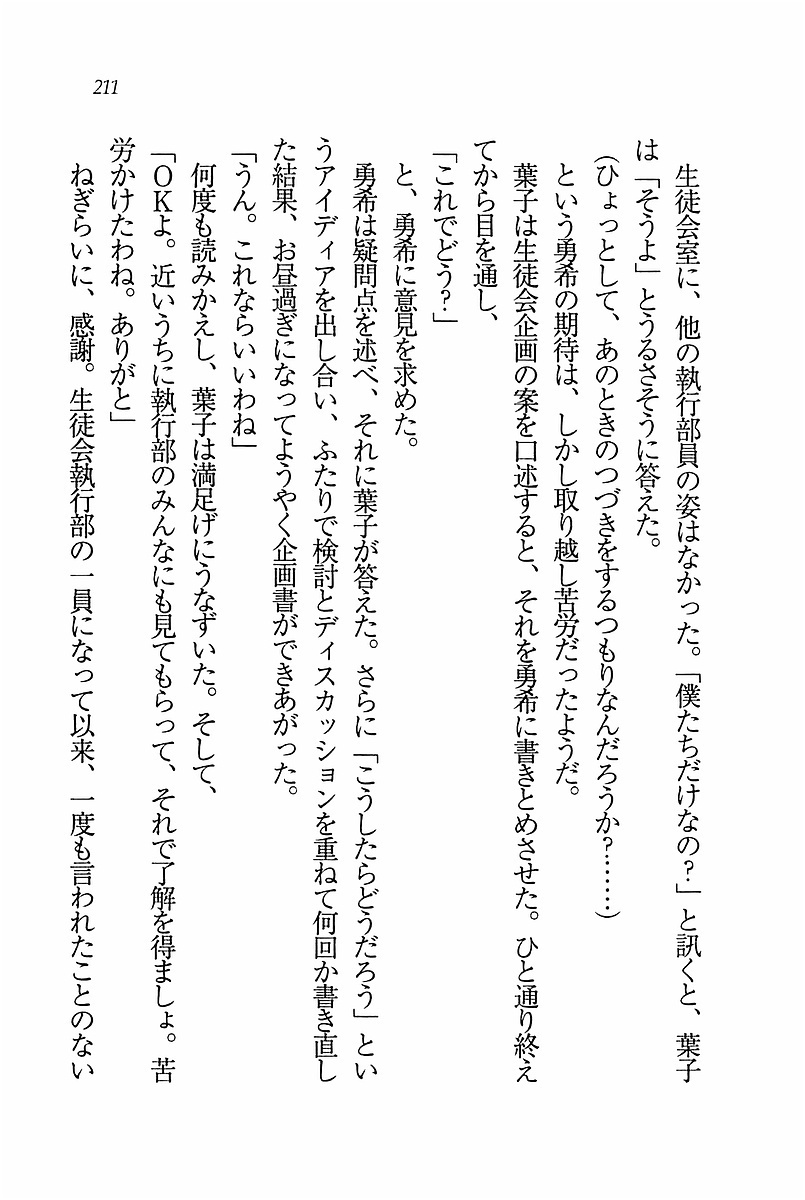 211
生徒会室に、他の執行部員の姿はなかった。「僕たちだけなの？」と訊くと、葉子
は「そうよ」とうるさそうに答えた。
（ひょっとして、あのときのつづきをするつもりなんだろうか？……）
という勇希の期待は、しかし取り越し苦労だったようだ。
葉子は生徒会企画の案を口述すると、それを勇希に書きとめさせた。ひと通り終え
てから目を通し、
「これでどう？」
と、勇希に意見を求めた。
勇希は疑問点を述べ、それに葉子が答えた。さらに「こうしたらどうだろう」とい
うアイディアを出し合い、ふたりで検討とディスカッションを重ねて何回か書き直し
た結果、お昼過ぎになってようやく企画書ができあがった。
「うん。これならいいわね」
何度も読みかえし、葉子は満足げにうなずいた。そして、
「ＯＫよ。近いうちに執行部のみんなにも見てもらって、それで了解を得ましょ。苦
労かけたわね。ありがと」
ねぎらいに、感謝。生徒会執行部の一員になって以来、一度も言われたことのない